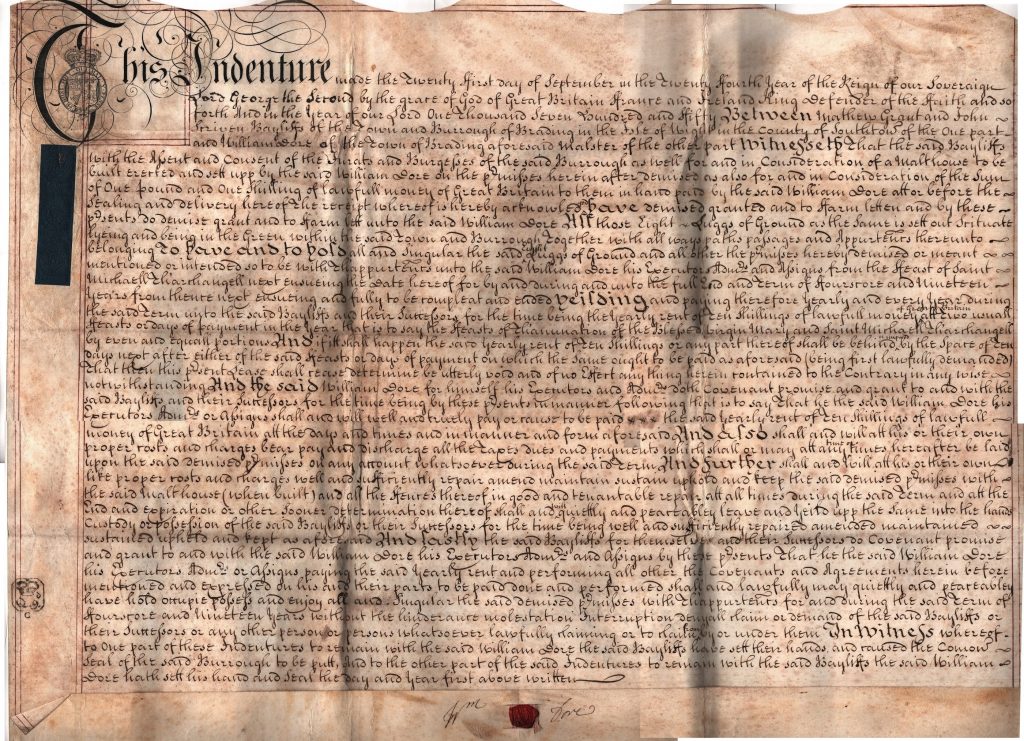 This Indenture made the Twenty First day of September in the Twenty Fourth Year of the Reign of our Sovereign
Lord George the Second by the grace of God of Great Britain France and Ireland King Defender of the Faith and so
forth And in the Year of our Lord One Thousand Seven Hundred and Fifty Between Mathew Grant and John
Scriven Bayliffs of the Town and Burrough of Brading in the Isle of Wight in the County of Southton of the One part
and William Dore of the Town of Brading aforesaid Malster of the other part Witnesseth That the said Bayliffs
with the Assent and Consent of the Jurats and Burgesses of the said Burrough as well for and in Consideration of a Malthouse to be
built erected and sett upp by the said William Dore on the p'misses herein after demised as also for and in Consideration of the Sum
of One pound and One Shilling of lawfull money of Great Britain to them in hand paid by the said William Dore att or before the
Sealing and delivery hereof The receipt whereof is hereby acknowledged Have demised granted and to Farm letten and by these
p'sents do demise grant and to Farm lett unto the said William Dore All those Eight Luggs of Ground as the Same is sett out Scituate
lyeing and being in the Green within the said Town and Burrough Together with all ways paths passages and Appurtents thereunto
belonging To have and to hold all and Singular the said Eight Luggs of Ground and all other the p'misses hereby demised or meant
mentioned or intended so to be with Th'appurtents unto the said William Dore his Executors Adm'rs and Assigns from the Feast of Saint
Michaell Tharchangell next ensueing the Date hereof for by and during and unto the full End and Term of Fourscore and Nineteen
Years from thence next ensueing and fully to be compleat and ended Yeilding and paying therefore yearly and every year during
the said Term unto the said Bayliffs and their Successors for the time being the Yearly rent of Ten Shillings of lawfull money of Great Britain att Two usuall
Feasts or days of payment in the Year that is to say the Feasts of Th'anunciation of the Blessed Virgin Mary and Saint Michaell Tharchangell
by even and equall portions And if itt shall happen the said yearly rent of Ten Shillings or any part thereof shall be behind by the Space of Ten
days next after either of the said Feasts or days of payment on which the Same ought to be paid as aforesaid (being first lawfully demanded)
That then this p'sent Lease shall cease determine be utterly void and of no Effect any thing herein contained to the Contrary in any wise
notwithstanding And the said William Dore for himself his Executors and Adm'rs doth Covenant promise and grant to and with the
said Bayliffs and their Successors for the time being by these p'sents in manner following that is to say That he the said William Dore his
Executors Adm'rs or Assigns shall and will well and truely pay or cause to be paid the said yearly rent of Ten Shillings of lawfull
money of Great Britain att the days and times and in manner and form aforesaid And also shall and will att his or their own
proper costs and charges bear pay and discharge all the Taxes dues and payments which shall or may att any time or times hereafter be laid
upon the said demised p'misses on any account whatsoever during the said Term And further shall and will att his or their own
like proper costs and charges well and sufficiently repair amend maintain sustain uphold and keep the said demised p'misses with
the said Malt house (when built) and all the Fences thereof in good and tenantable repair att all times during the said Term and att the
End and expiration or other sooner determination thereof shall and will quietly and peaceably leave and yeild upp the Same into the hands
Custody or possession of the said Bayliffs or their Successors for the time being well and sufficiently repaired amended maintained
sustained upheld and kept as aforesaid And lastly the said Bayliffs for themselves and their Successors do Covenant promise
and grant to and with the said William Dore his Executors Adm'rs and Assigns by these p'sents That he the said William Dore
his Executors Adm'rs or Assigns paying the said Yearly rent and performing all other the Covenants and Agreements herein before
mentioned and expressed on his and their parts to be paid done and performed shall and lawfully may quietly and peaceabley
have hold occupie possess and enjoy all and Singular the said demised p'misses with Th'appurtents for and during the said Term of
Fourscore and Nineteen Years without the hinderance molestation Interruption denyall claim or demand of the said Bayliffs or
their Successors or any other person or persons whatsoever lawfully claiming or to claim by or under them In Witness whereof
to One part of these Indentures to remain with the said William Dore the said Bayliffs have sett their hands and caused the Comon
Seal of the said Burrough to be putt, And to the other part of the said Indentures to remain with the said Bayliffs the said William
Dore hath sett his hand and Seal the day and year first above written
Wm Dore